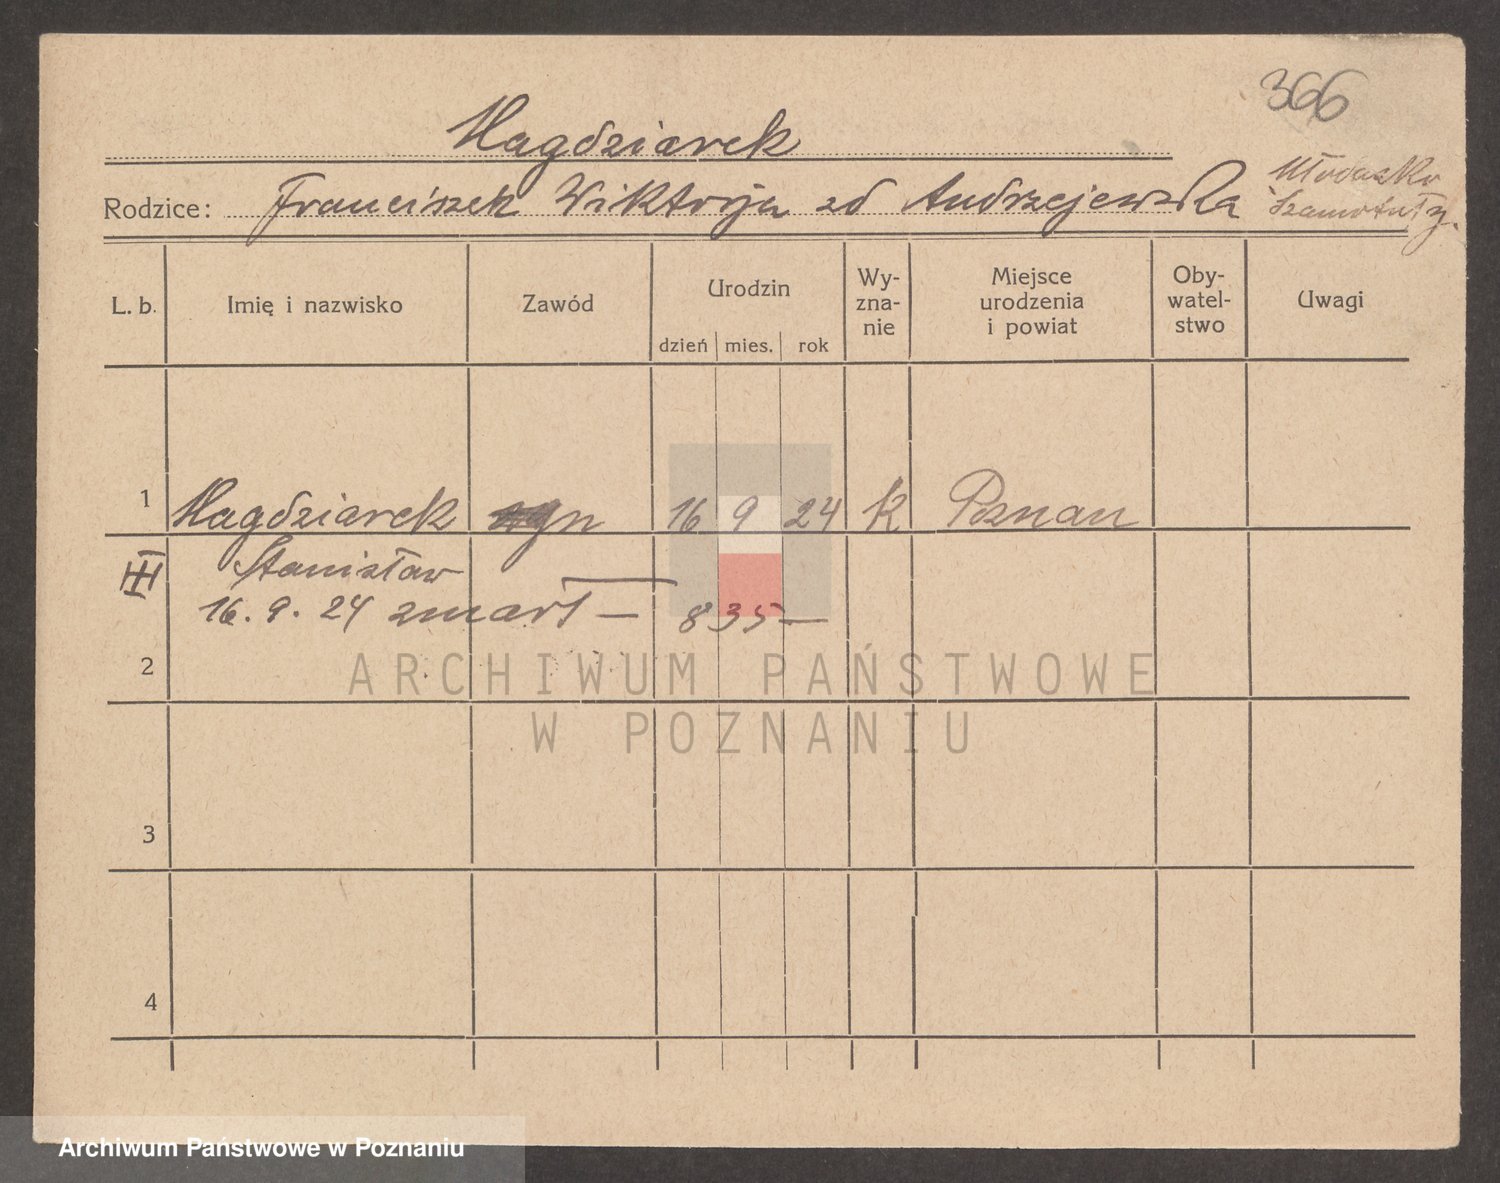 366
Magdziarek
Rodzice: Franciszek Wiktorja zd Andrzejewska
Szamotuły.
L. b. Imię i nazwisko Zawód Urodzin dzień mies. rok Wy-zna-nie Miejsce urodzenia i powiat Oby-watel-stwo Uwagi
1 Magdziarek 16 9 24 k Poznan
III Stanisław
16. 9. 24 zmarł — 835 —
2
3
4
ARCHIWUM PAŃSTWOWE
W POZNANIU
Archiwum Państwowe w Poznaniu